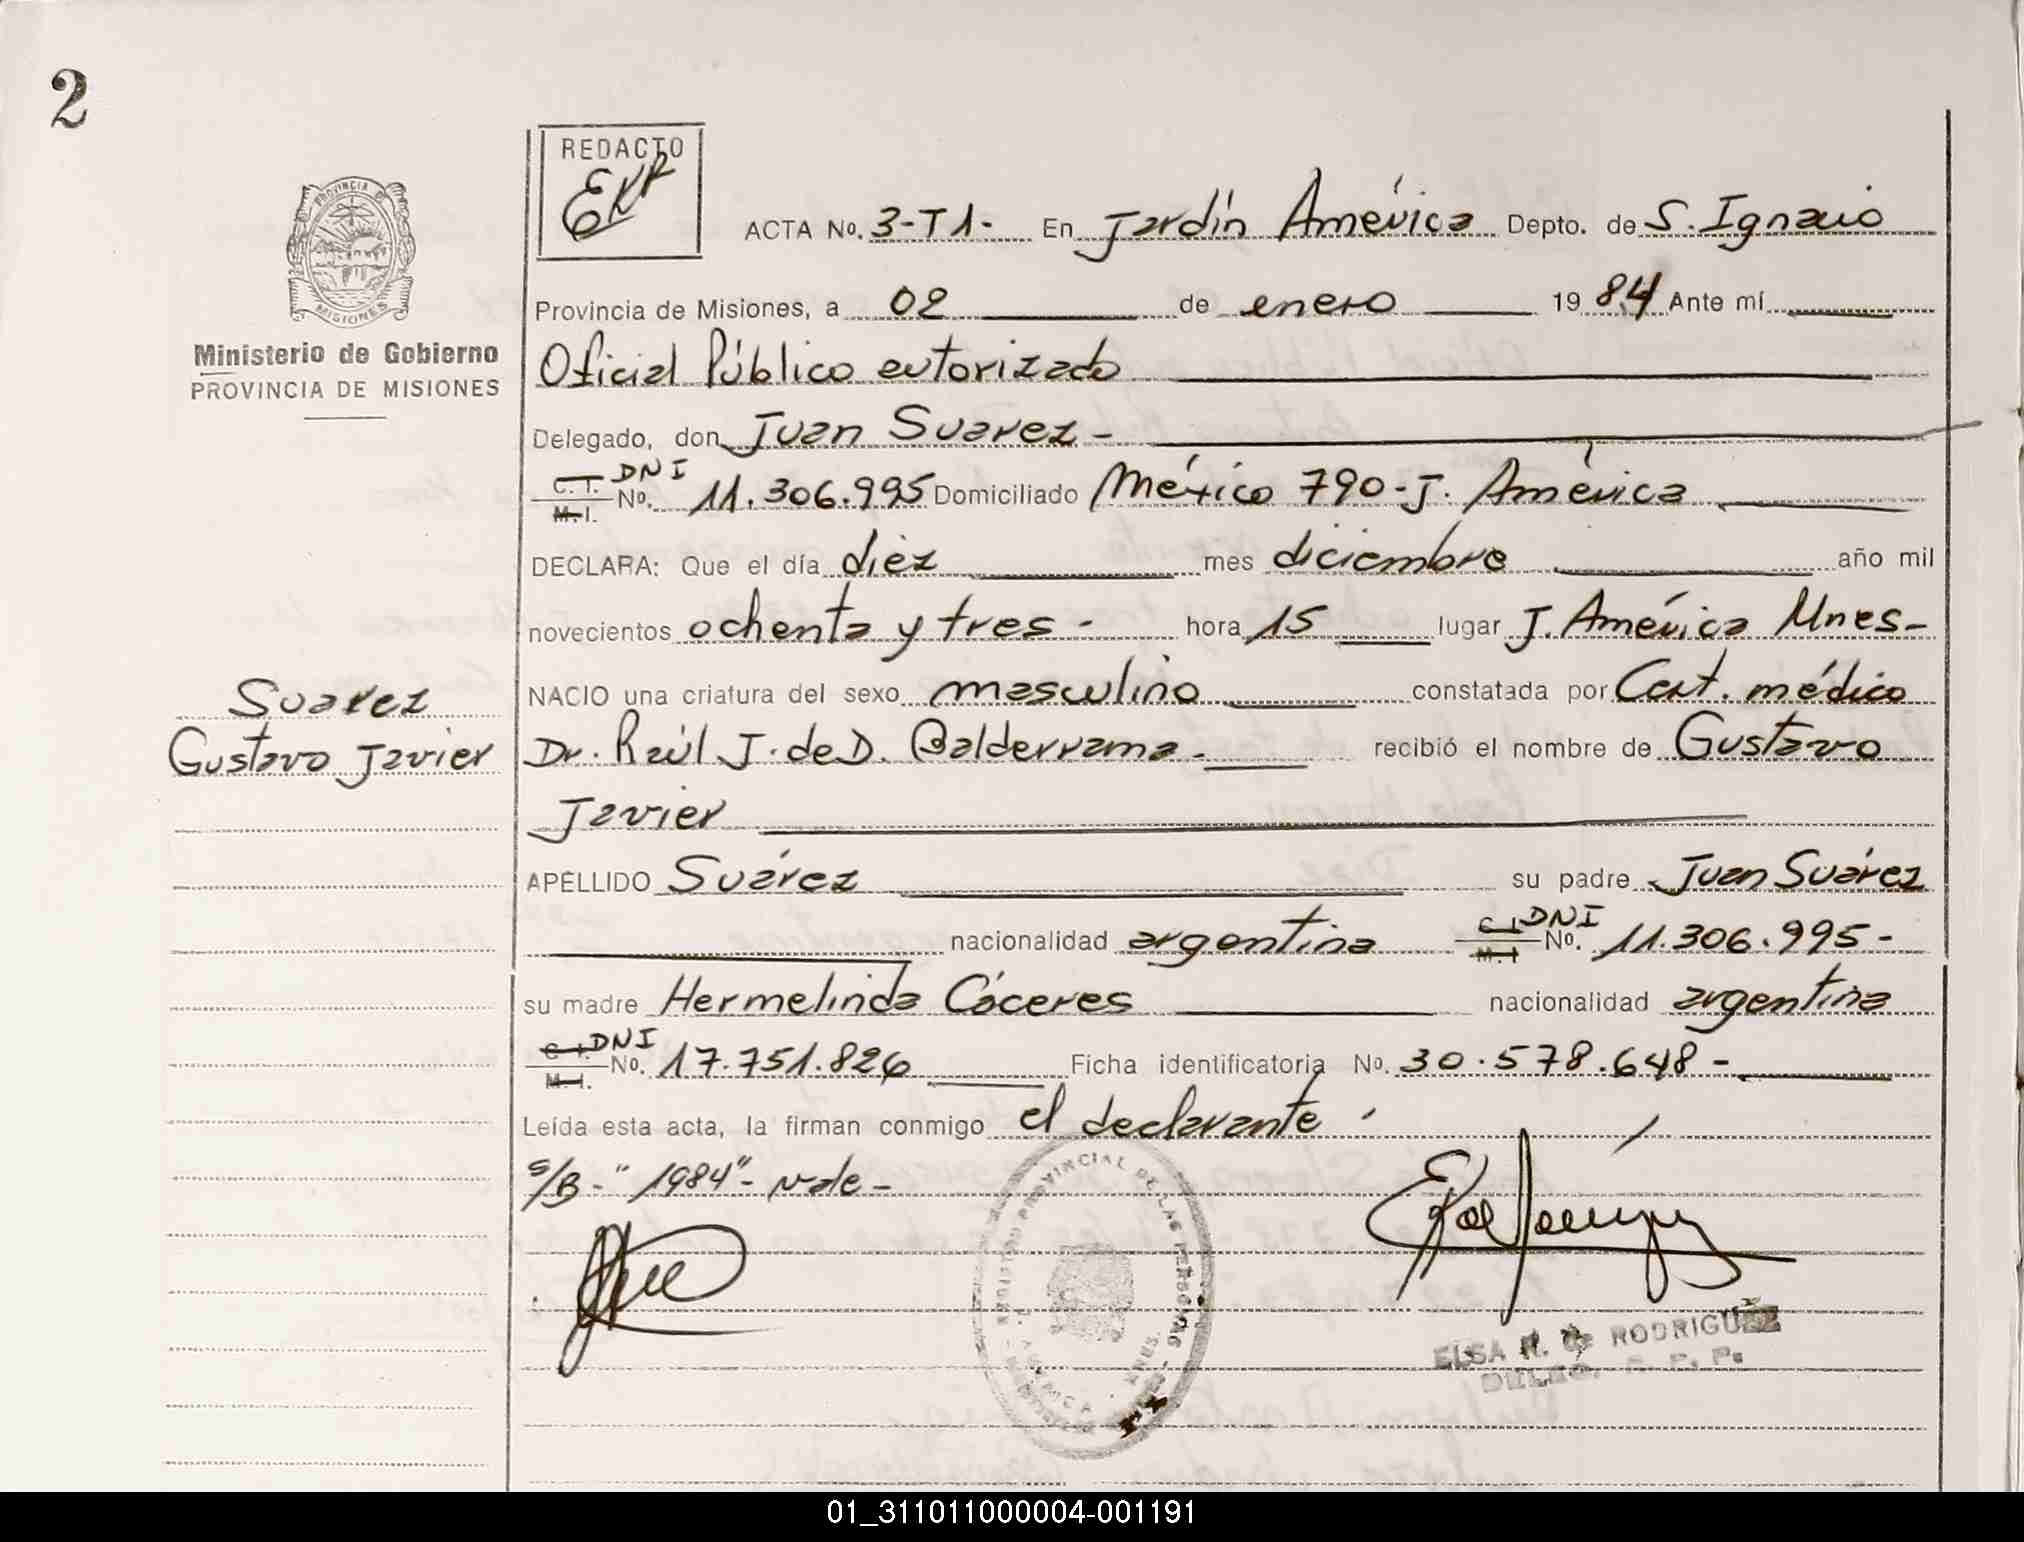 2
REDACTO
EKR
ACTA No. 3-T1- En Jardín América Depto. de S. Ignacio
PROVINCIA DE
MISIONES
Provincia de Misiones, a 02 de enero 1984 Ante mí
Ministerio de Gobierno
PROVINCIA DE MISIONES
Oficial Público autorizado
Delegado, don Juan Suarez -
C. I. M. I. DNI No. 11.306.995 Domiciliado México 790-J. América
DECLARA: Que el día diez mes diciembre año mil
novecientos ochenta y tres - hora 15 lugar J. América Mnes-
NACIO una criatura del sexo masculino constatada por Cert. médico
Suarez
Gustavo Javier
Dr. Raúl J. de D. Balderrama - recibió el nombre de Gustavo
Javier
APELLIDO Suárez su padre Juan Suárez
nacionalidad argentina C. I. M. I DNI No. 11.306.995-
su madre Hermelinda Cáceres nacionalidad argentina
C. I. M. I. DNI No. 17.751.826 Ficha identificatoria No. 30.578.648-
Leída esta acta, la firman conmigo el declarante
s/B - "1984" - vale -
REGISTRO PROVINCIAL DE LAS PERSONAS
ELSA RODRIGUEZ
01_311011000004-001191